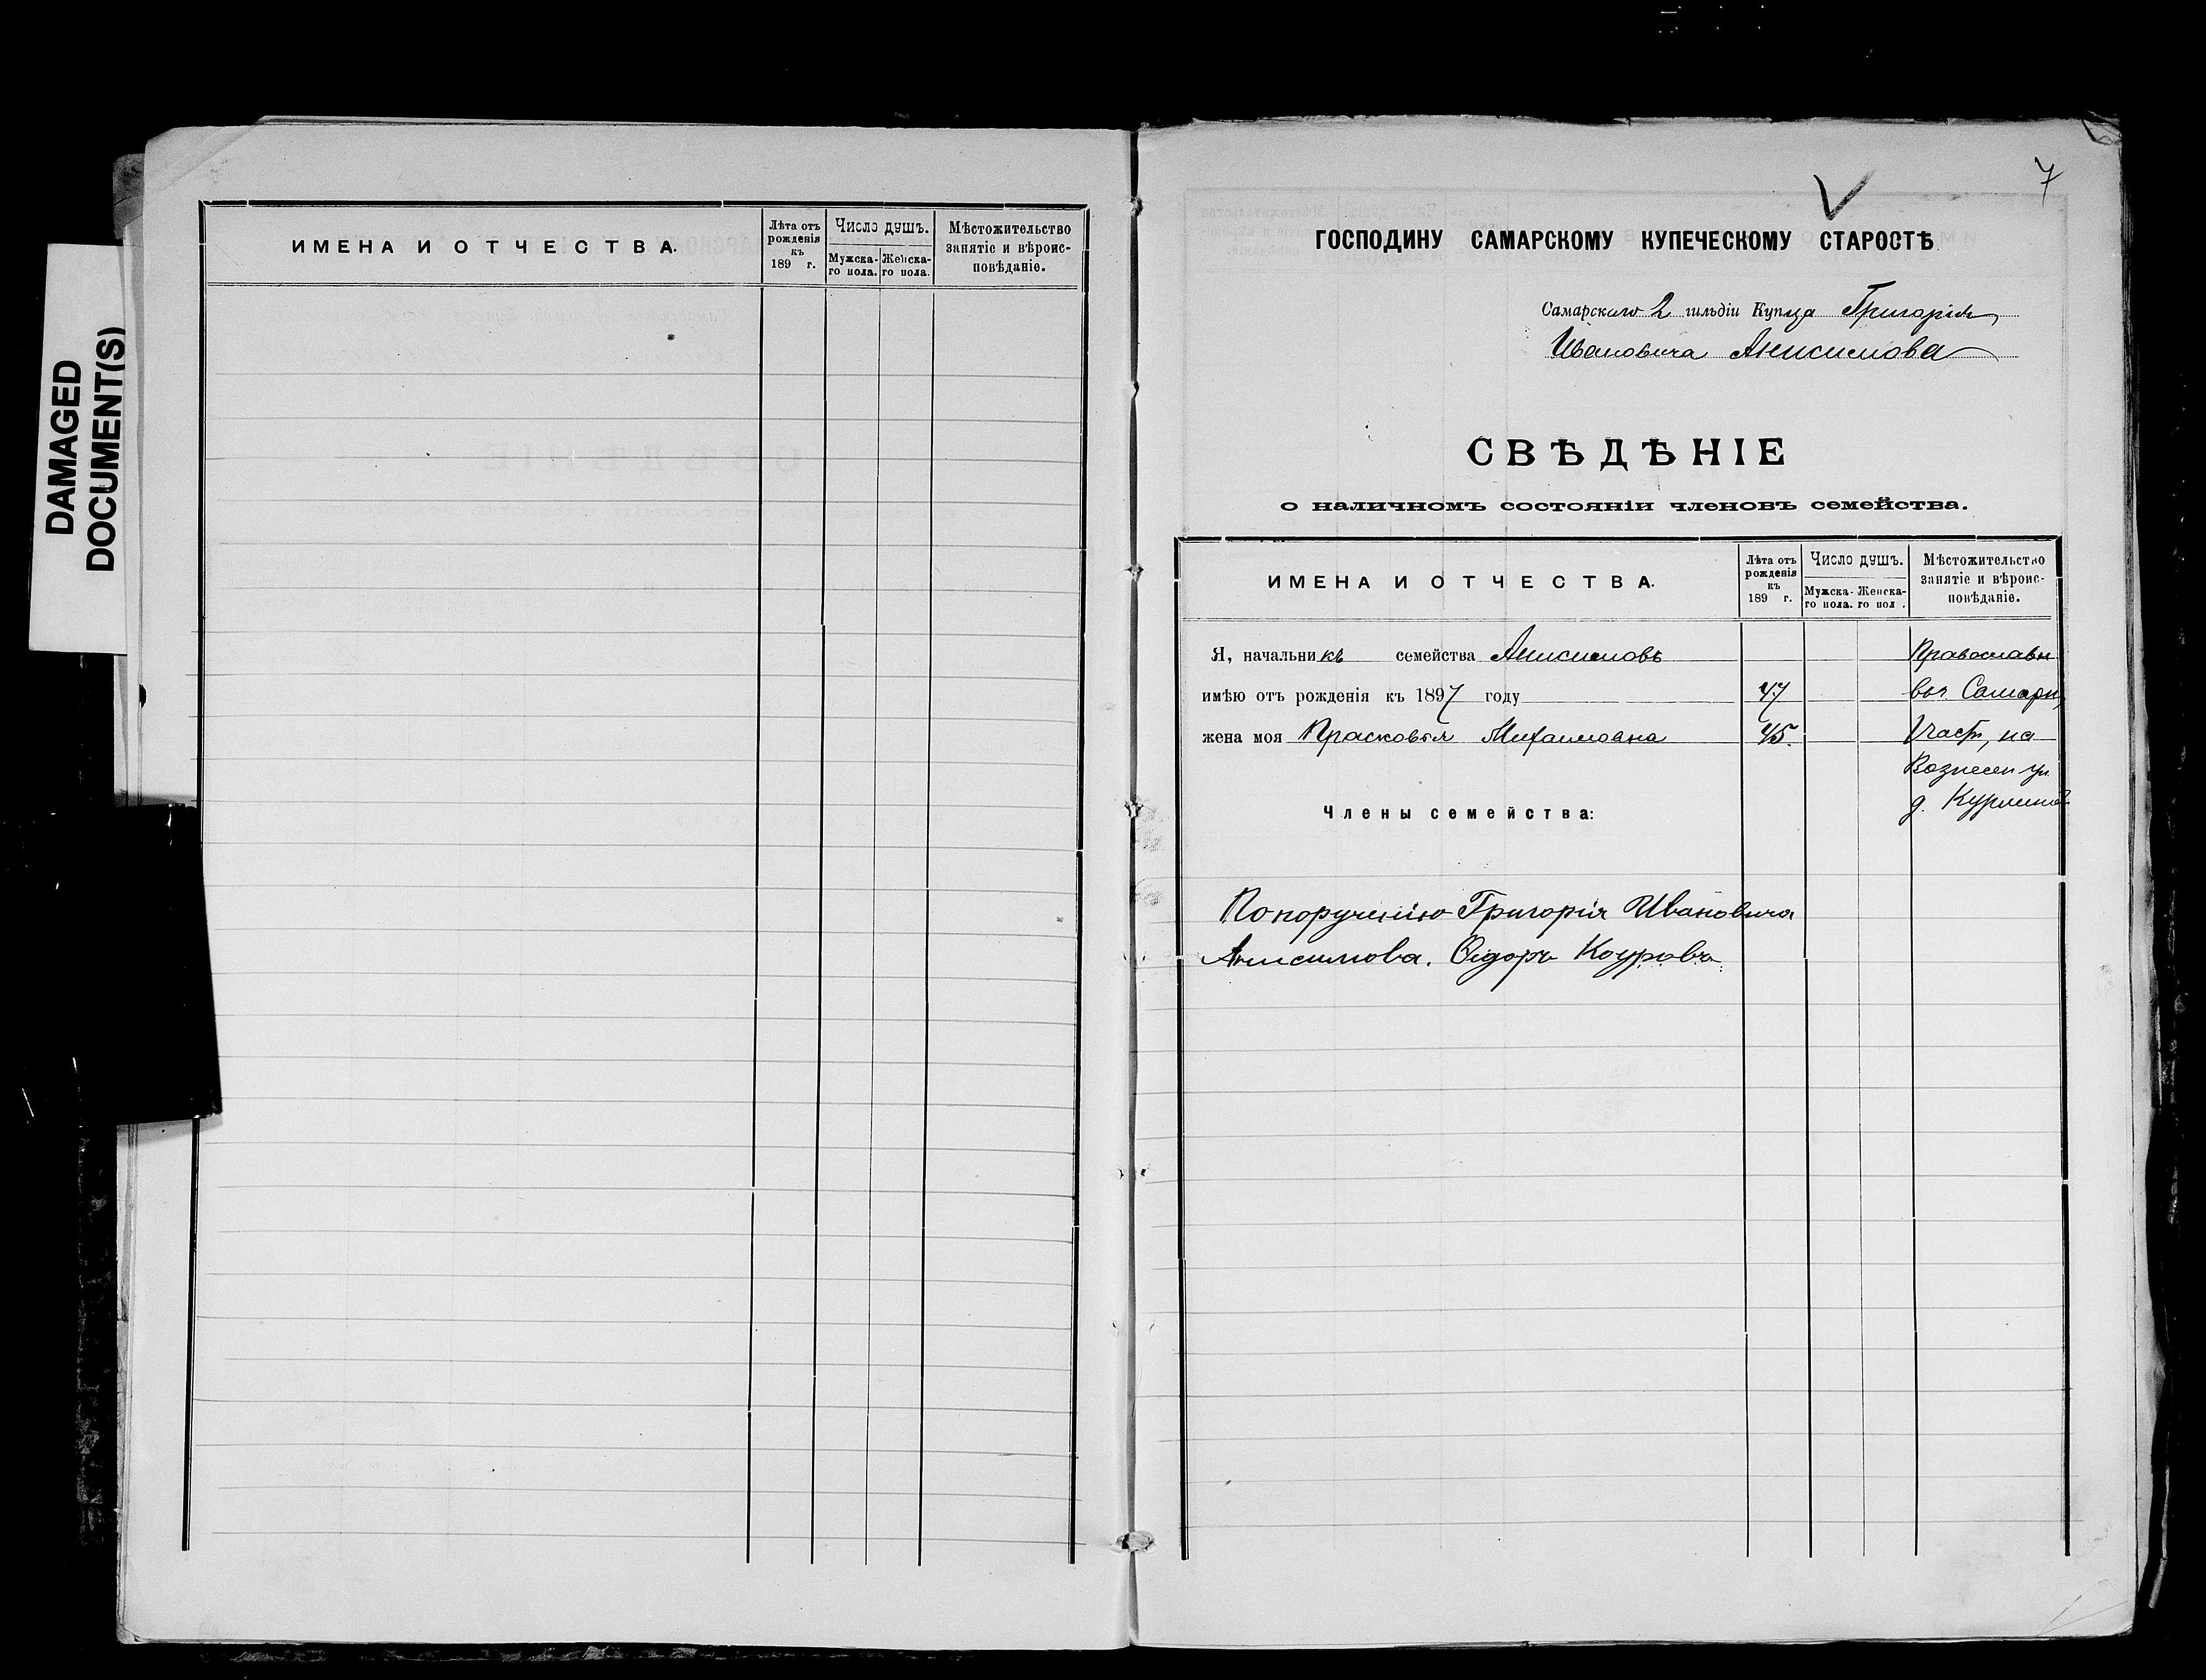 DAMAGED
DOCUMENT(S)
ИМЕНА И ОТЧЕСТВА.
Лѣта отъ
рожденія
къ
189 г.
Число душъ.
Мужска-
го пола.
Женска-
го пола.
Мѣстожительство
занятіе и вѣроис-
повѣданіе.
7
ГОСПОДИНУ САМАРСКОМУ КУПЕЧЕСКОМУ СТАРОСТѢ.
Самарскаго 2 гильдіи Купца Григорія
Ивановича Анисимова
СВѢДѢНІЕ
о наличномъ состояніи членовъ семейства.
ИМЕНА И ОТЧЕСТВА.
Лѣта отъ
рожденія
къ
189 г.
Число душъ.
Мужска-
го пола.
Женска-
го пол .
Мѣстожительство
занятіе и вѣроис-
повѣданіе.
Я, начальникъ семейства Анисимовъ Православн
имѣю отъ рожденія къ 1897 году 47 Самары,
жена моя Прасковья Михаиловна 45. част, на
Вознесен ул.
д.
Члены семейства:
По порученію Григорія Ивановича
Анисимова. Ѳедоръ Коуровъ